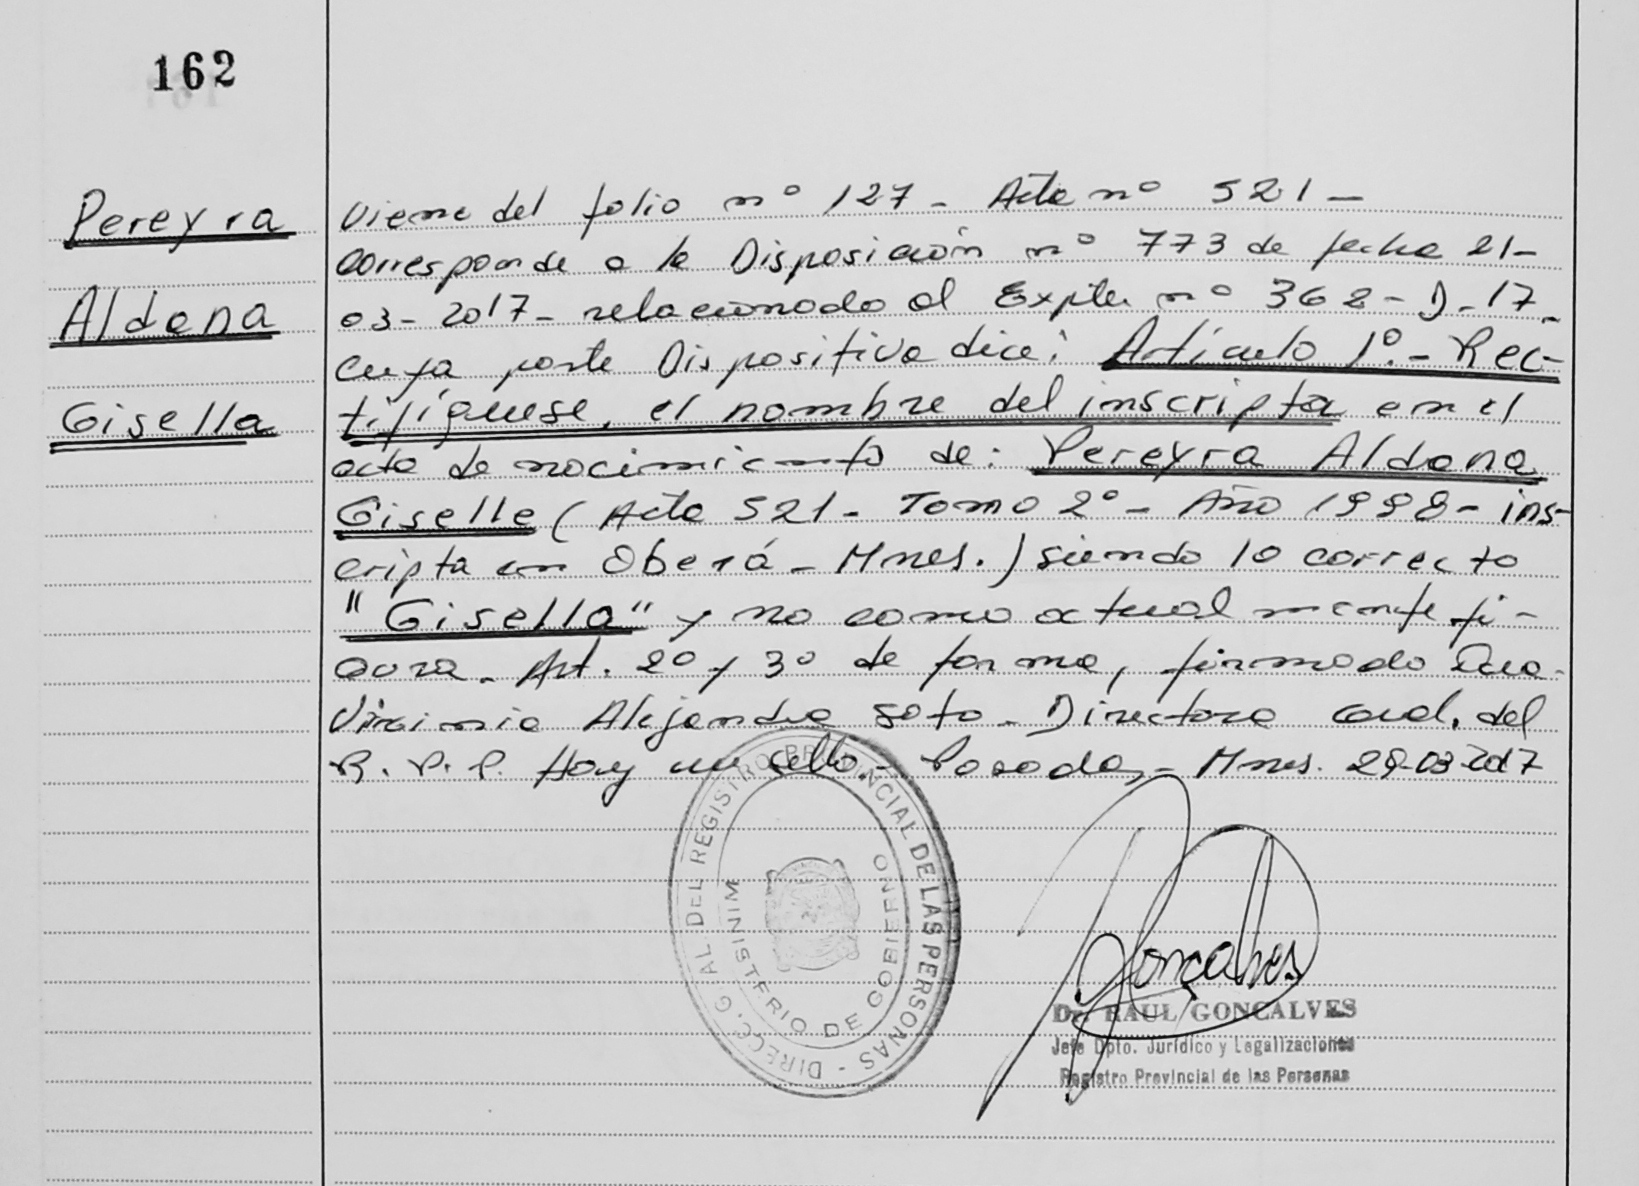 162
Pereyra
Aldana
Gisella
Viene del folio nº 127 - Acta nº 521 -
corresponde a la Disposición nº 773 de fecha 21-
03-2017- relacionado al Expte. nº 362-D-17-
cuya parte Dispositiva dice: Artículo 1º.- Rec-
tifíquese, el nombre del inscripta en el
acta de nacimiento de: Pereyra Aldana
Giselle (Acta 521 - Tomo 2º - Año 1998 - ins-
cripta en Oberá - Mnes.) siendo lo correcto
"Gisella" y no como actualmente fi-
gura. Art. 2º y 3º de forma, firmado
Virginia Alejandra Soto - Directora Gral. del
R.P.P. Hay un sello.- Posadas - Mnes. 29-03-2017
DIRECC. G'AL DEL REGISTRO PROVINCIAL DE LAS PERSONAS -
MINISTERIO DE GOBIERNO
Gonçalves
Dr. RAUL GONCALVES
Jefe Dpto. Jurídico y Legalizaciones
Registro Provincial de las Personas